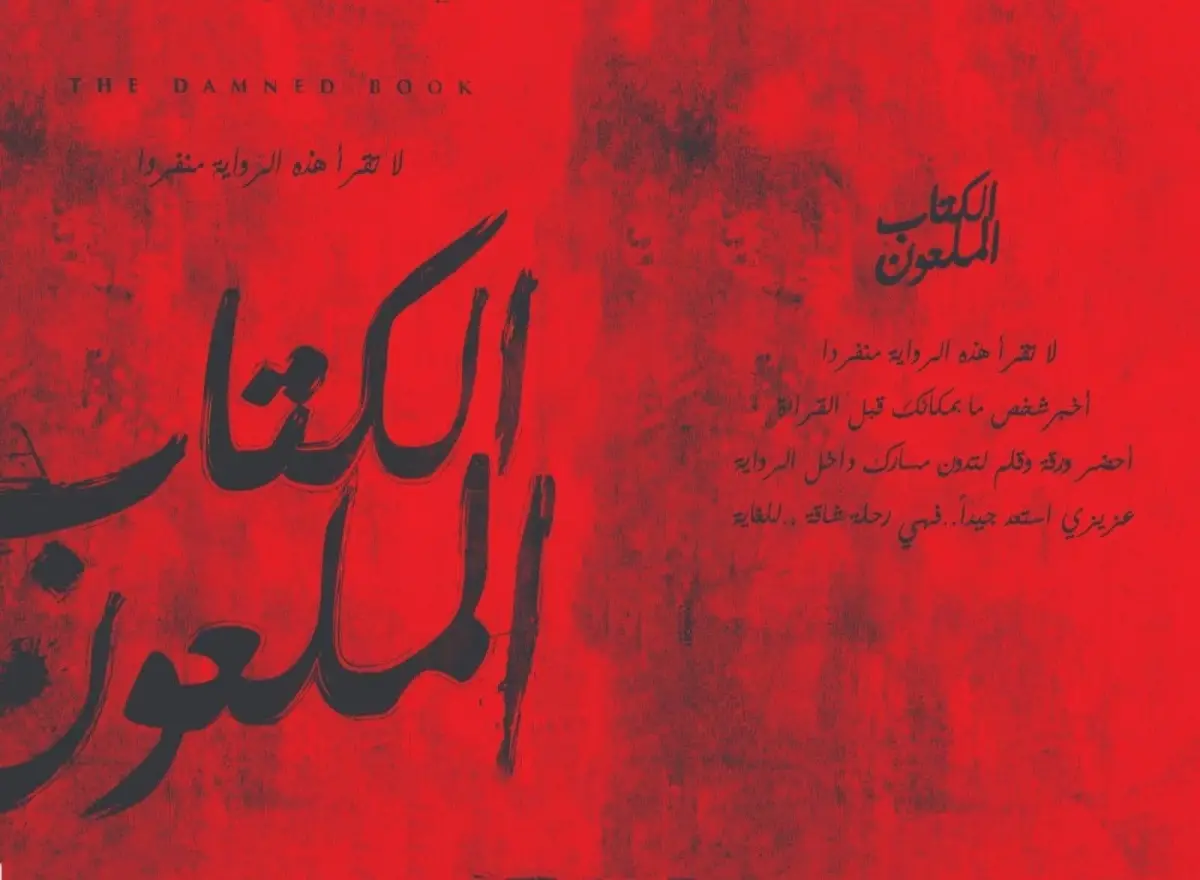 THE DAMNED BOOK
لا تقرأ هذه الرواية منفردا
الكتاب
الملعون
الكتاب
الملعون
لا تقرأ هذه الرواية منفردا
أخبر شخص ما بمكانك قبل القراءة
أحضر ورقة وقلم لتدون مسارك داخل الرواية
عزيزي استعد جيداً..فهي رحلة شاقة ..للغاية